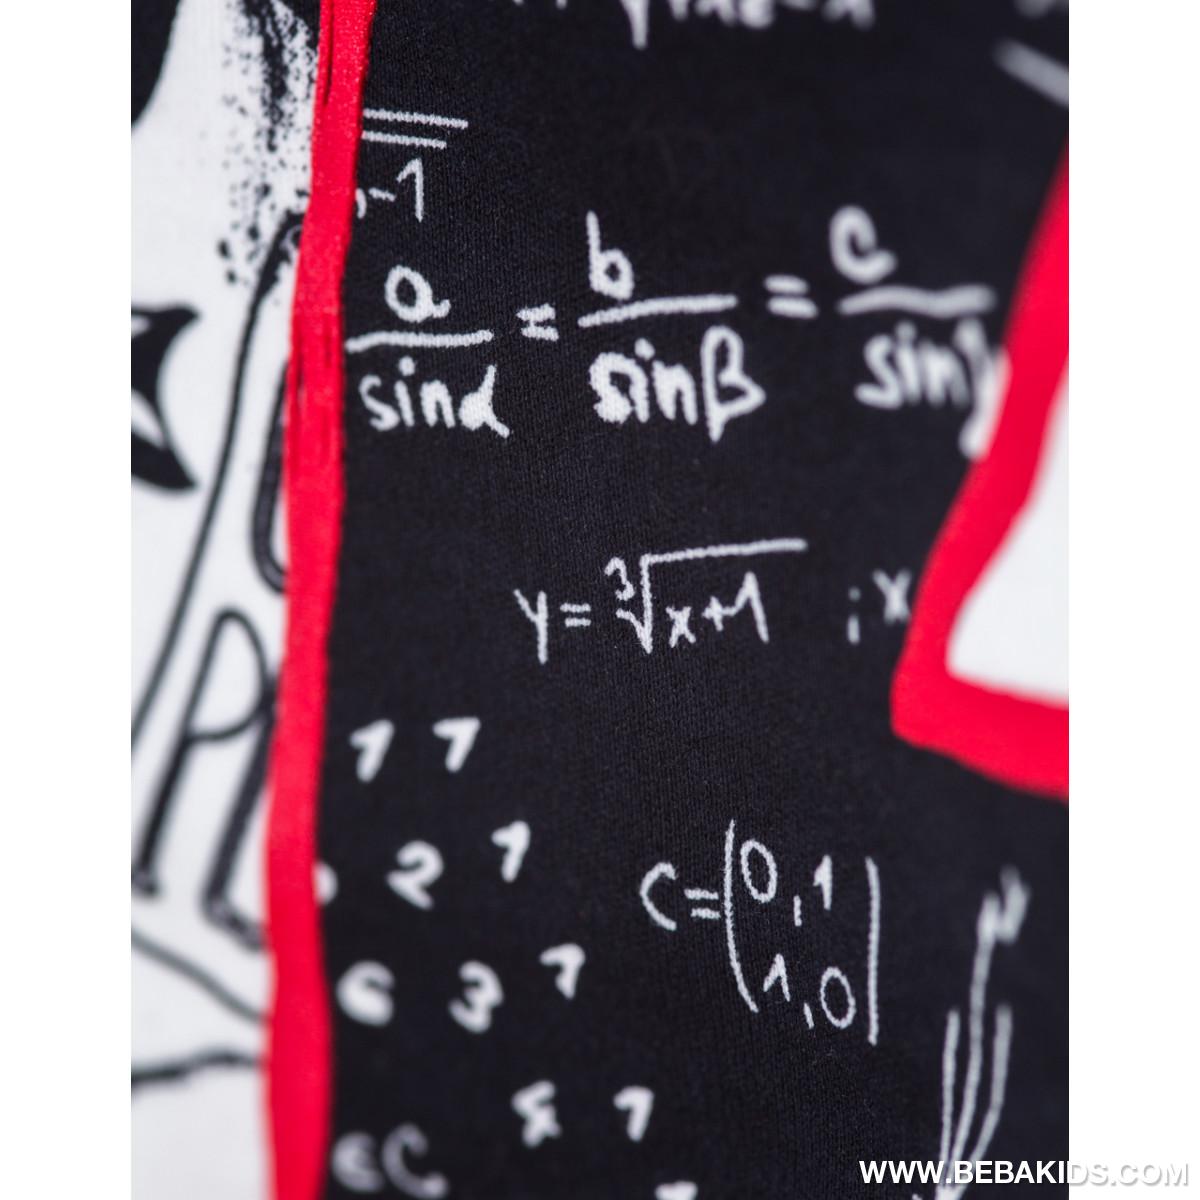 -1
a/sinα = b/sinβ = c/sinγ
y = ³√x+1 ; x
1 1
2 1
6 3 1
C = (0,1
1,0|
4 1
∈C
WWW.BEBAKIDS.COM